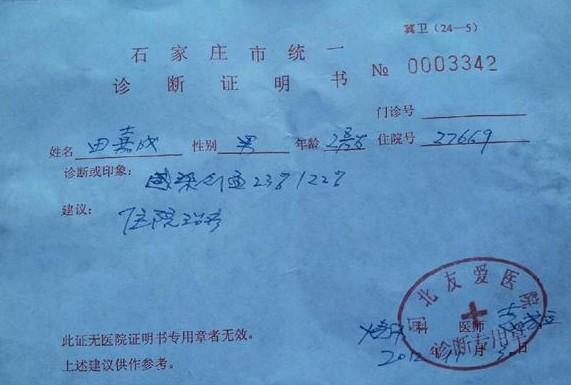 冀卫（24—5）
石家庄市统一
诊断证明书 № 0003342
门诊号
姓名 田嘉成 性别 男 年龄 住院号 27669
诊断或印象：
建议：
住院治疗
河北友爱医院
诊断专用章
科 医师
2012年11月 日
此证无医院证明书专用章者无效。
上述建议供作参考。